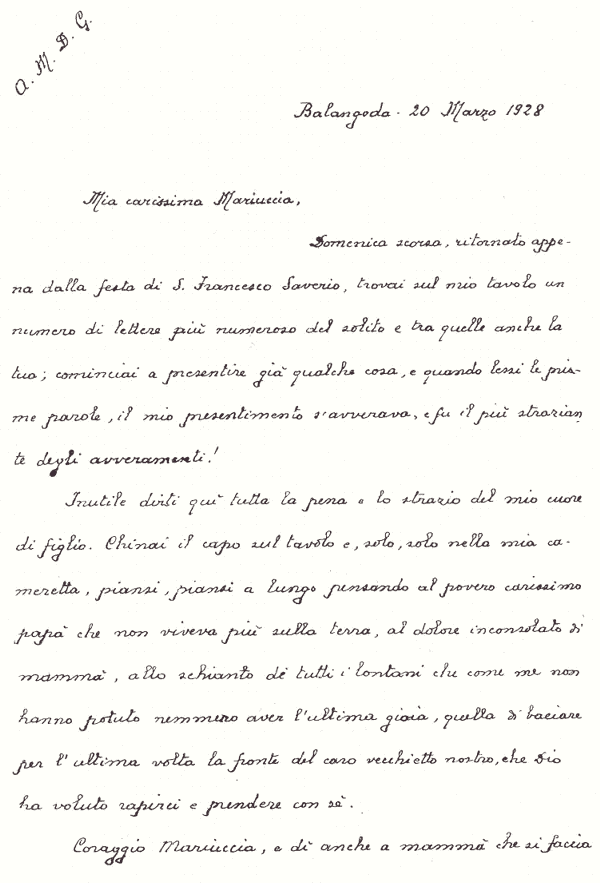 A. M. D. G.
Balangoda - 20 Marzo 1928
Mia carissima Mariuccia,
Domenica scorsa, ritornato appe-
na dalla festa di S. Francesco Saverio, trovai sul mio tavolo un
numero di lettere più numeroso del solito e tra quelle anche la
tua; cominciai a presentire già qualche cosa, e quando lessi le pri-
me parole, il mio presentimento s'avverava, e fu il più strazian
te degli avveramenti!
Inutile dirti qui tutta la pena e lo strazio del mio cuore
di figlio. Chinai il capo sul tavolo e, solo, solo nella mia ca-
meretta, piansi, piansi a lungo pensando al povero carissimo
papà che non viveva più sulla terra, al dolore inconsolato di
mammà, allo schianto de' tutti i lontani che come me non
hanno potuto nemmeno aver l'ultima gioia, quella di baciare
per l'ultima volta la fronte del caro vecchietto nostro, che Dio
ha voluto rapirci e prendere con sè.
Coraggio Mariuccia, e dì anche a mammà che si faccia